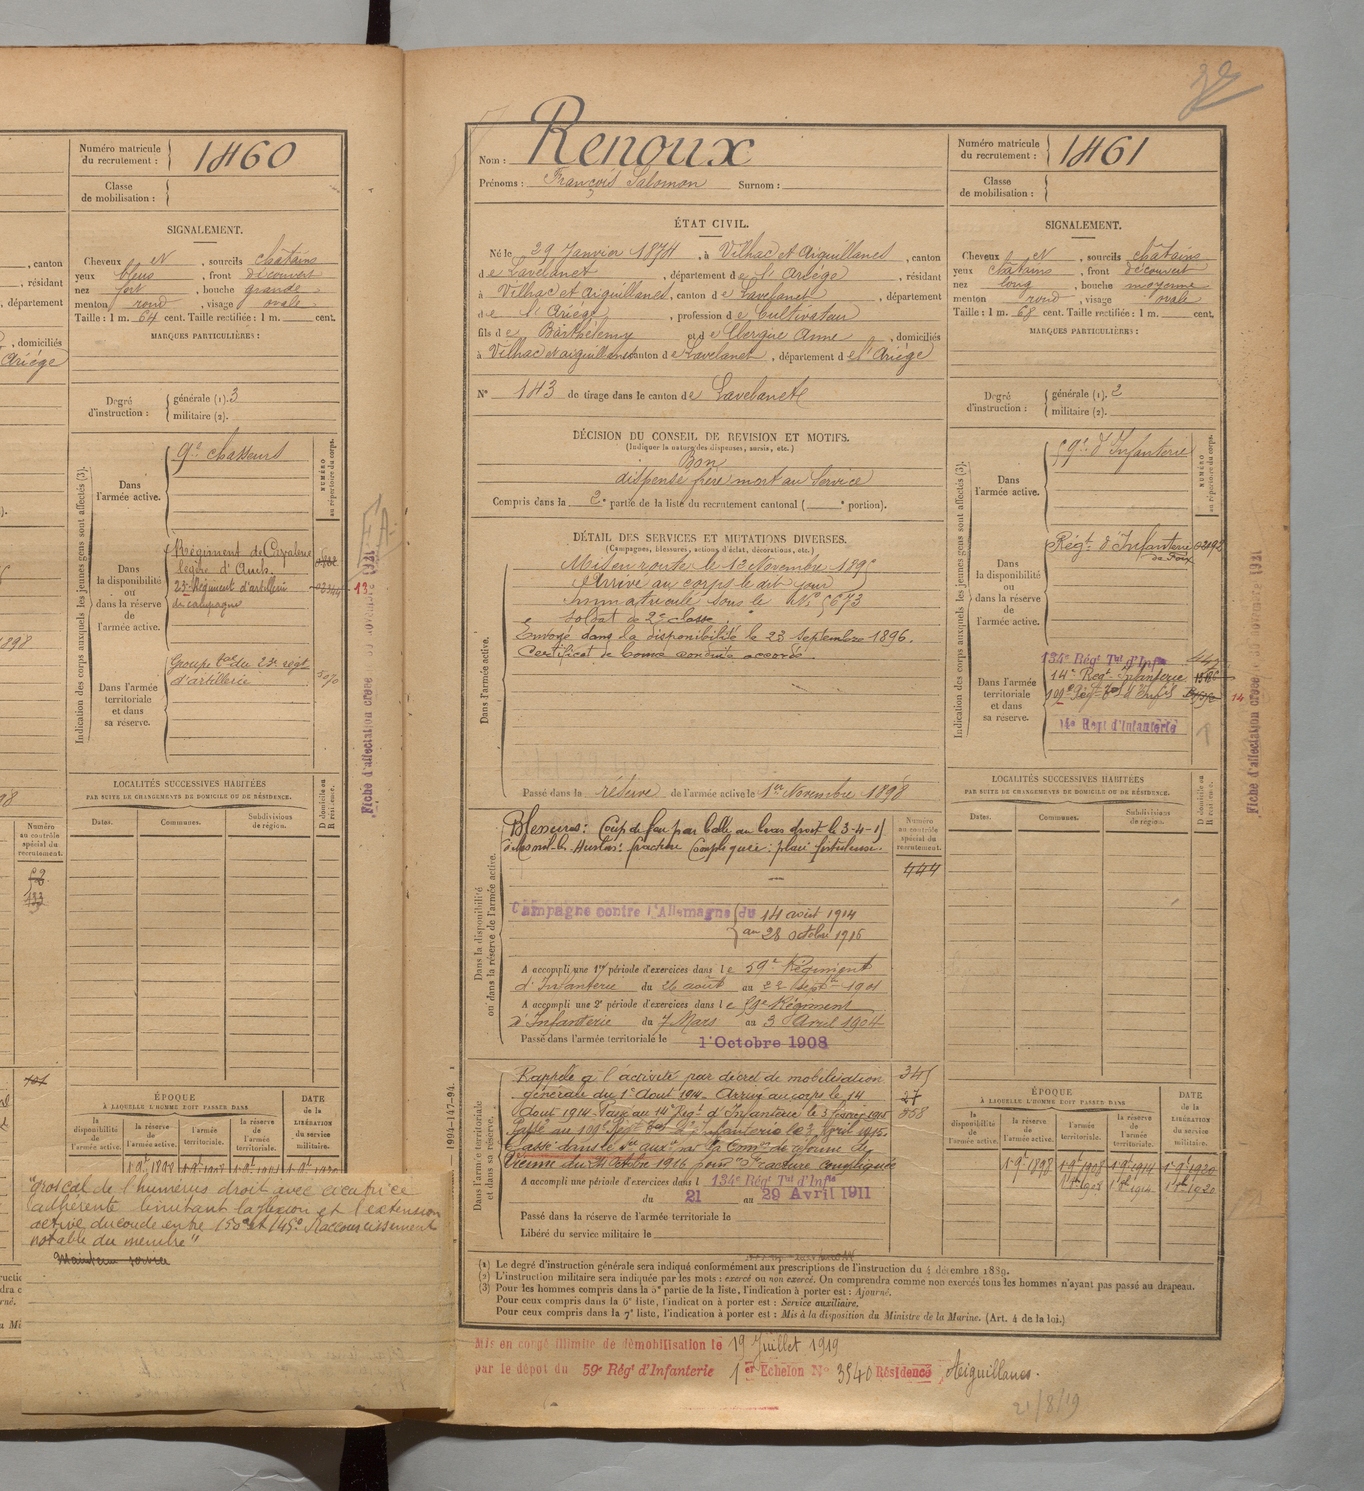 Numéro matricule
du recrutement : 1460
Classe
de mobilisation :
SIGNALEMENT.
Cheveux N , sourcils châtains
yeux bleus , front découvert
nez fort , bouche grande
menton rond , visage ovale
Taille : 1 m. 64 cent. Taille rectifiée : 1 m. cent.
MARQUES PARTICULIÈRES :
, canton
, résidant
, département
, domiciliés
Ariége
Degré
d'instruction :
générale (1). 3
militaire (2).
Indication des corps auxquels les jeunes gens sont affectés (3).
Dans
l'armée active.
9e chasseurs
NUMÉRO
au répertoire du corps.
Dans
la disponibilité
ou
dans la réserve
de
l'armée active.
Régiment de Cavalerie
légère d'Auch.
23e Régiment d'artillerie
de campagne
Dans l'armée
territoriale
et dans
sa réserve.
Groupe tal du 23e régt
d'artillerie
Fiche d'affectation créée
LOCALITÉS SUCCESSIVES HABITÉES
PAR SUITE DE CHANGEMENTS DE DOMICILE OU DE RÉSIDENCE.
Dates.
Communes.
Subdivisions
de région.
D domicile ou
R résidence.
Numéro
au contrôle
spécial du
recrutement.
ÉPOQUE
À LAQUELLE L'HOMME DOIT PASSER DANS
DATE
de la
LIBÉRATION
du service
militaire.
la
disponibilité
de
l'armée active.
la réserve
de
l'armée active.
l'armée
territoriale.
la réserve
de l'armée
territoriale.
"gros cal de l'humérus droit avec cicatrice
adhérente limitant la flexion et l'extension
active du coude entre 150° et 45°. Raccourcissement
notable du membre"
Maintenu service
Nom : Renoux
Prénoms : François Salomon Surnom :
ÉTAT CIVIL.
Né le 29 Janvier 1874 , à Vilhac et Aiguillanes , canton
de Lavelanet , département de l'Ariége , résidant
à Vilhac et Aiguillanes, canton de Lavelanet , département
de l'Ariége , profession de Cultivateur
fils de Barthélemy et de Clergue Anne , domiciliés
à Vilhac et aiguillanes canton de Lavelanet , département de l'Ariége
N° 143 de tirage dans le canton de Lavelanet
DÉCISION DU CONSEIL DE REVISION ET MOTIFS.
(Indiquer la nature des dispenses, sursis, etc.)
Bon
dispensé frère mort au Service
Compris dans la 2e partie de la liste du recrutement cantonal ( e portion).
DÉTAIL DES SERVICES ET MUTATIONS DIVERSES.
(Campagnes, blessures, actions d'éclat, décorations, etc.)
Dans l'armée active.
Mis en route le 13 Novembre 1895
Arrivé au corps le dit jour
Immatriculé sous le N° 5673
Soldat de 2e classe.
Envoyé dans la disponibilité le 23 Septembre 1896.
Certificat de bonne conduite accordé.
Passé dans la réserve de l'armée active le 1er Novembre 1898
Dans la disponibilité
ou dans la réserve de l'armée active.
Blessures : Coup de feu par balle au bras droit le 3-4-15
fracture Compliquée : plaie fistuleuse.
Numéro
au contrôle
spécial du
recrutement.
444
Campagne contre l'Allemagne du 14 août 1914
au 28 octobre 1916
A accompli une 1re période d'exercices dans le 59e Régiment
d'Infanterie du 26 août au 22 Septbre 1901
A accompli une 2e période d'exercices dans le 59e Régiment
d'Infanterie du 7 Mars au 3 Avril 1904
Passé dans l'armée territoriale le 1er Octobre 1908
Dans l'armée territoriale
et dans sa réserve.
Rappelé à l'activité par décret de mobilisation
générale du 1er Août 1914. Arrivé au corps le 14
Août 1914. Passé au 14e Régt d'Infanterie le 3 février 1915
Passé au 109e Régt tal d'Infanterie le 3 Avril 1915.
Classé dans le Sce auxre par la Comon de réforme de
Vienne du 21 Octobre 1916 pour "Fracture compliquée
345
27
558
A accompli une période d'exercices dans l 134e Régt Tal d'Infie
du 21 au 29 Avril 1911
Passé dans la réserve de l'armée territoriale le
Libéré du service militaire le
(1) Le degré d'instruction générale sera indiqué conformément aux prescriptions de l'instruction du 4 décembre 1889.
(2) L'instruction militaire sera indiquée par les mots : exercé ou non exercé. On comprendra comme non exercés tous les hommes n'ayant pas passé au drapeau.
(3) Pour les hommes compris dans la 5e partie de la liste, l'indication à porter est : Ajourné.
Pour ceux compris dans la 6e liste, l'indication à porter est : Service auxiliaire.
Pour ceux compris dans la 7e liste, l'indication à porter est : Mis à la disposition du Ministre de la Marine. (Art. 4 de la loi.)
Mis en congé illimité de démobilisation le 19 Juillet 1919
par le dépôt du 59e Régt d'Infanterie 1er Echelon N° 3540 Résidence Aiguillanes.
21/8/19
1994-147-94.
Numéro matricule
du recrutement : 1461
Classe
de mobilisation :
SIGNALEMENT.
Cheveux N , sourcils châtains
yeux châtains , front découvert
nez long , bouche moyenne
menton rond , visage ovale
Taille : 1 m. 68 cent. Taille rectifiée : 1 m. cent.
MARQUES PARTICULIÈRES :
Degré
d'instruction :
générale (1). 2
militaire (2).
Indication des corps auxquels les jeunes gens sont affectés (3).
Dans
l'armée active.
59e d'Infanterie
NUMÉRO
au répertoire du corps.
Dans
la disponibilité
ou
dans la réserve
de
l'armée active.
Régt d'Infanterie
de Foix
Dans l'armée
territoriale
et dans
sa réserve.
134e Régt Tal d'Infie
14e Régt Infanterie
109e Régt tal d'Infie
14e Regt d'Infanterie
Fiche d'affectation créée
LOCALITÉS SUCCESSIVES HABITÉES
PAR SUITE DE CHANGEMENTS DE DOMICILE OU DE RÉSIDENCE.
Dates.
Communes.
Subdivisions
de région.
D domicile ou
R résidence.
ÉPOQUE
À LAQUELLE L'HOMME DOIT PASSER DANS
DATE
de la
LIBÉRATION
du service
militaire.
la
disponibilité
de
l'armée active.
la réserve
de
l'armée active.
l'armée
territoriale.
la réserve
de l'armée
territoriale.
1 9e 1898
1 9e 1908
1 9e 1914
1 9e 1920
1 8bre 1908
1 8bre 1914
1 8bre 1920